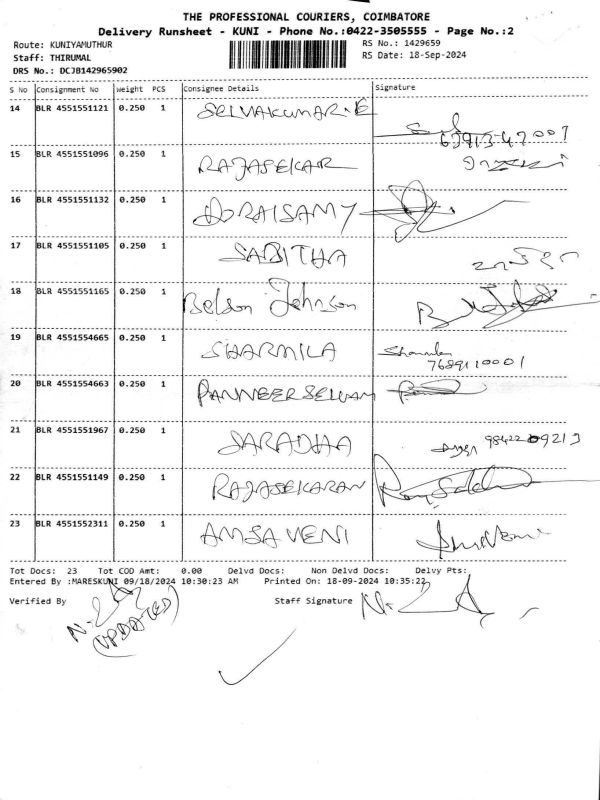 THE PROFESSIONAL COURIERS, COIMBATORE
Delivery Runsheet - KUNI - Phone No.:0422-3505555 - Page No.:2
Route: KUNIYAMUTHUR RS No.: 1429659
Staff: THIRUMAL RS Date: 18-Sep-2024
DRS No.: DCJB142965902
S No Consignment No Weight PCS Consignee Details Signature
14 BLR 4551551121 0.250 1 SELVAKUMAR.E
15 BLR 4551551096 0.250 1 RAJASEKAR
16 BLR 4551551132 0.250 1 DORAISAMY
17 BLR 4551551105 0.250 1 SABITHA
18 BLR 4551551165 0.250 1 Belson Johnson
19 BLR 4551554665 0.250 1 SHARMILA
7689110001
20 BLR 4551554663 0.250 1 PANNEERSELVAM
21 BLR 4551551967 0.250 1 SARADHA
22 BLR 4551551149 0.250 1 RAJASEKARAN
23 BLR 4551552311 0.250 1 AMSAVENI
Tot Docs: 23 Tot COD Amt: 0.00 Delvd Docs: Non Delvd Docs: Delvy Pts:
Entered By :MARESKUNI 09/18/2024 10:30:23 AM Printed On: 18-09-2024 10:35:22
Verified By Staff Signature
(UPDATED)